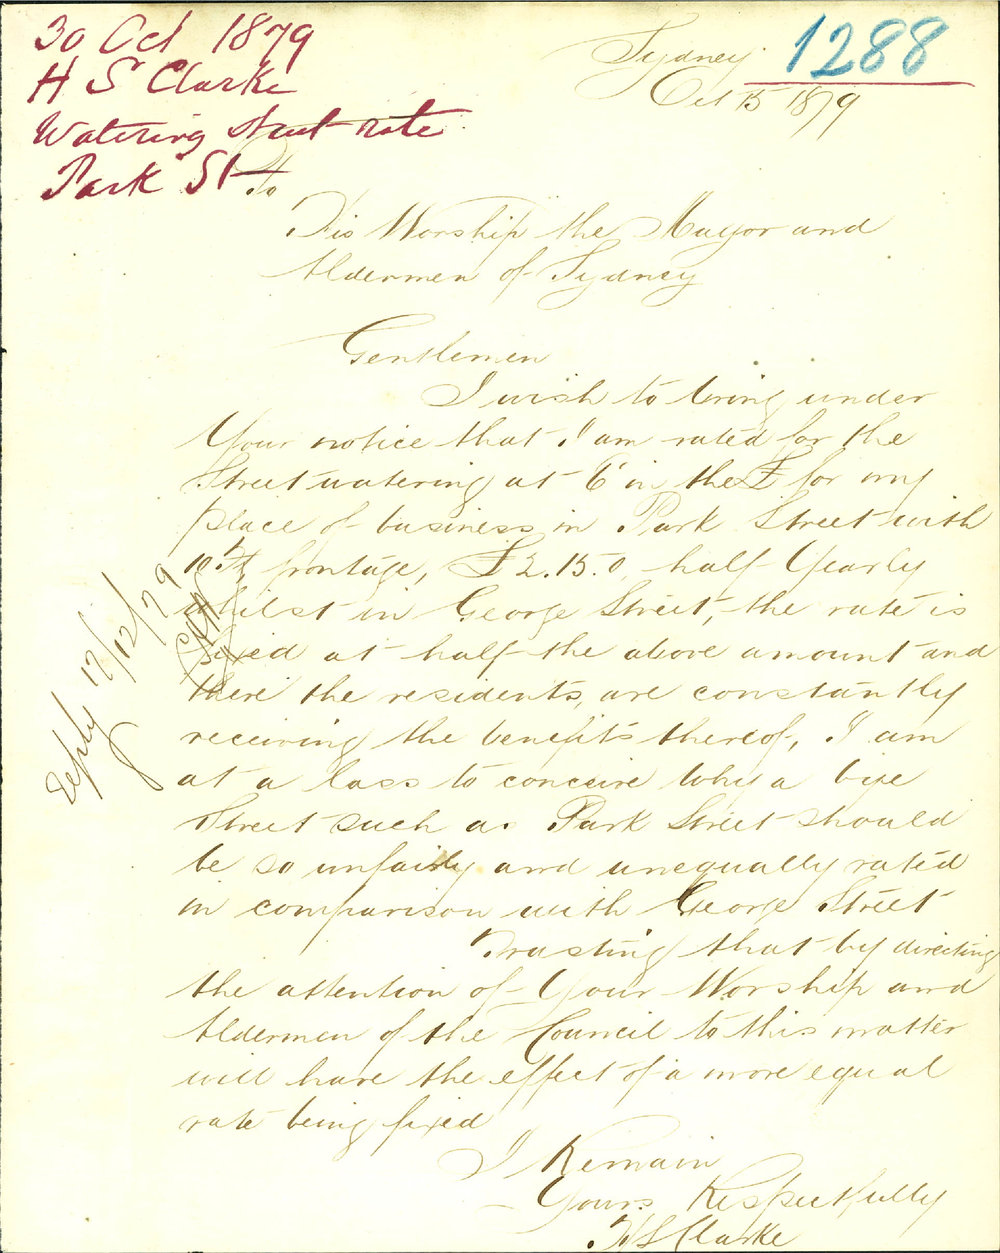 30 Oct 1879
H S Clarke
Watering Street rate
Park St
1288
Sydney
Oct 15 1879
To
His Worship the Mayor and
Aldermen of Sydney
Gentlemen
I wish to bring under
Your notice that I am rated for the
Street watering at 6d in the £ for my
place of business in Park Street with
10 ft frontage, £2.15.0, half Yearly
whilst in George Street, the rate is
fixed at half the above amount and
there the residents, are constantly
receiving the benefits thereof, I am
at a loss to conceive why a bye
Street such as Park Street should
be so unfairly and unequally rated
in comparison with George Street
Trusting that by directing
the attention of Your Worship and
Aldermen of the Council to this matter
will have the effect of a more equal
rate being fixed
I Remain
Yours Respectfully
H S Clarke
Reply 12/12/79